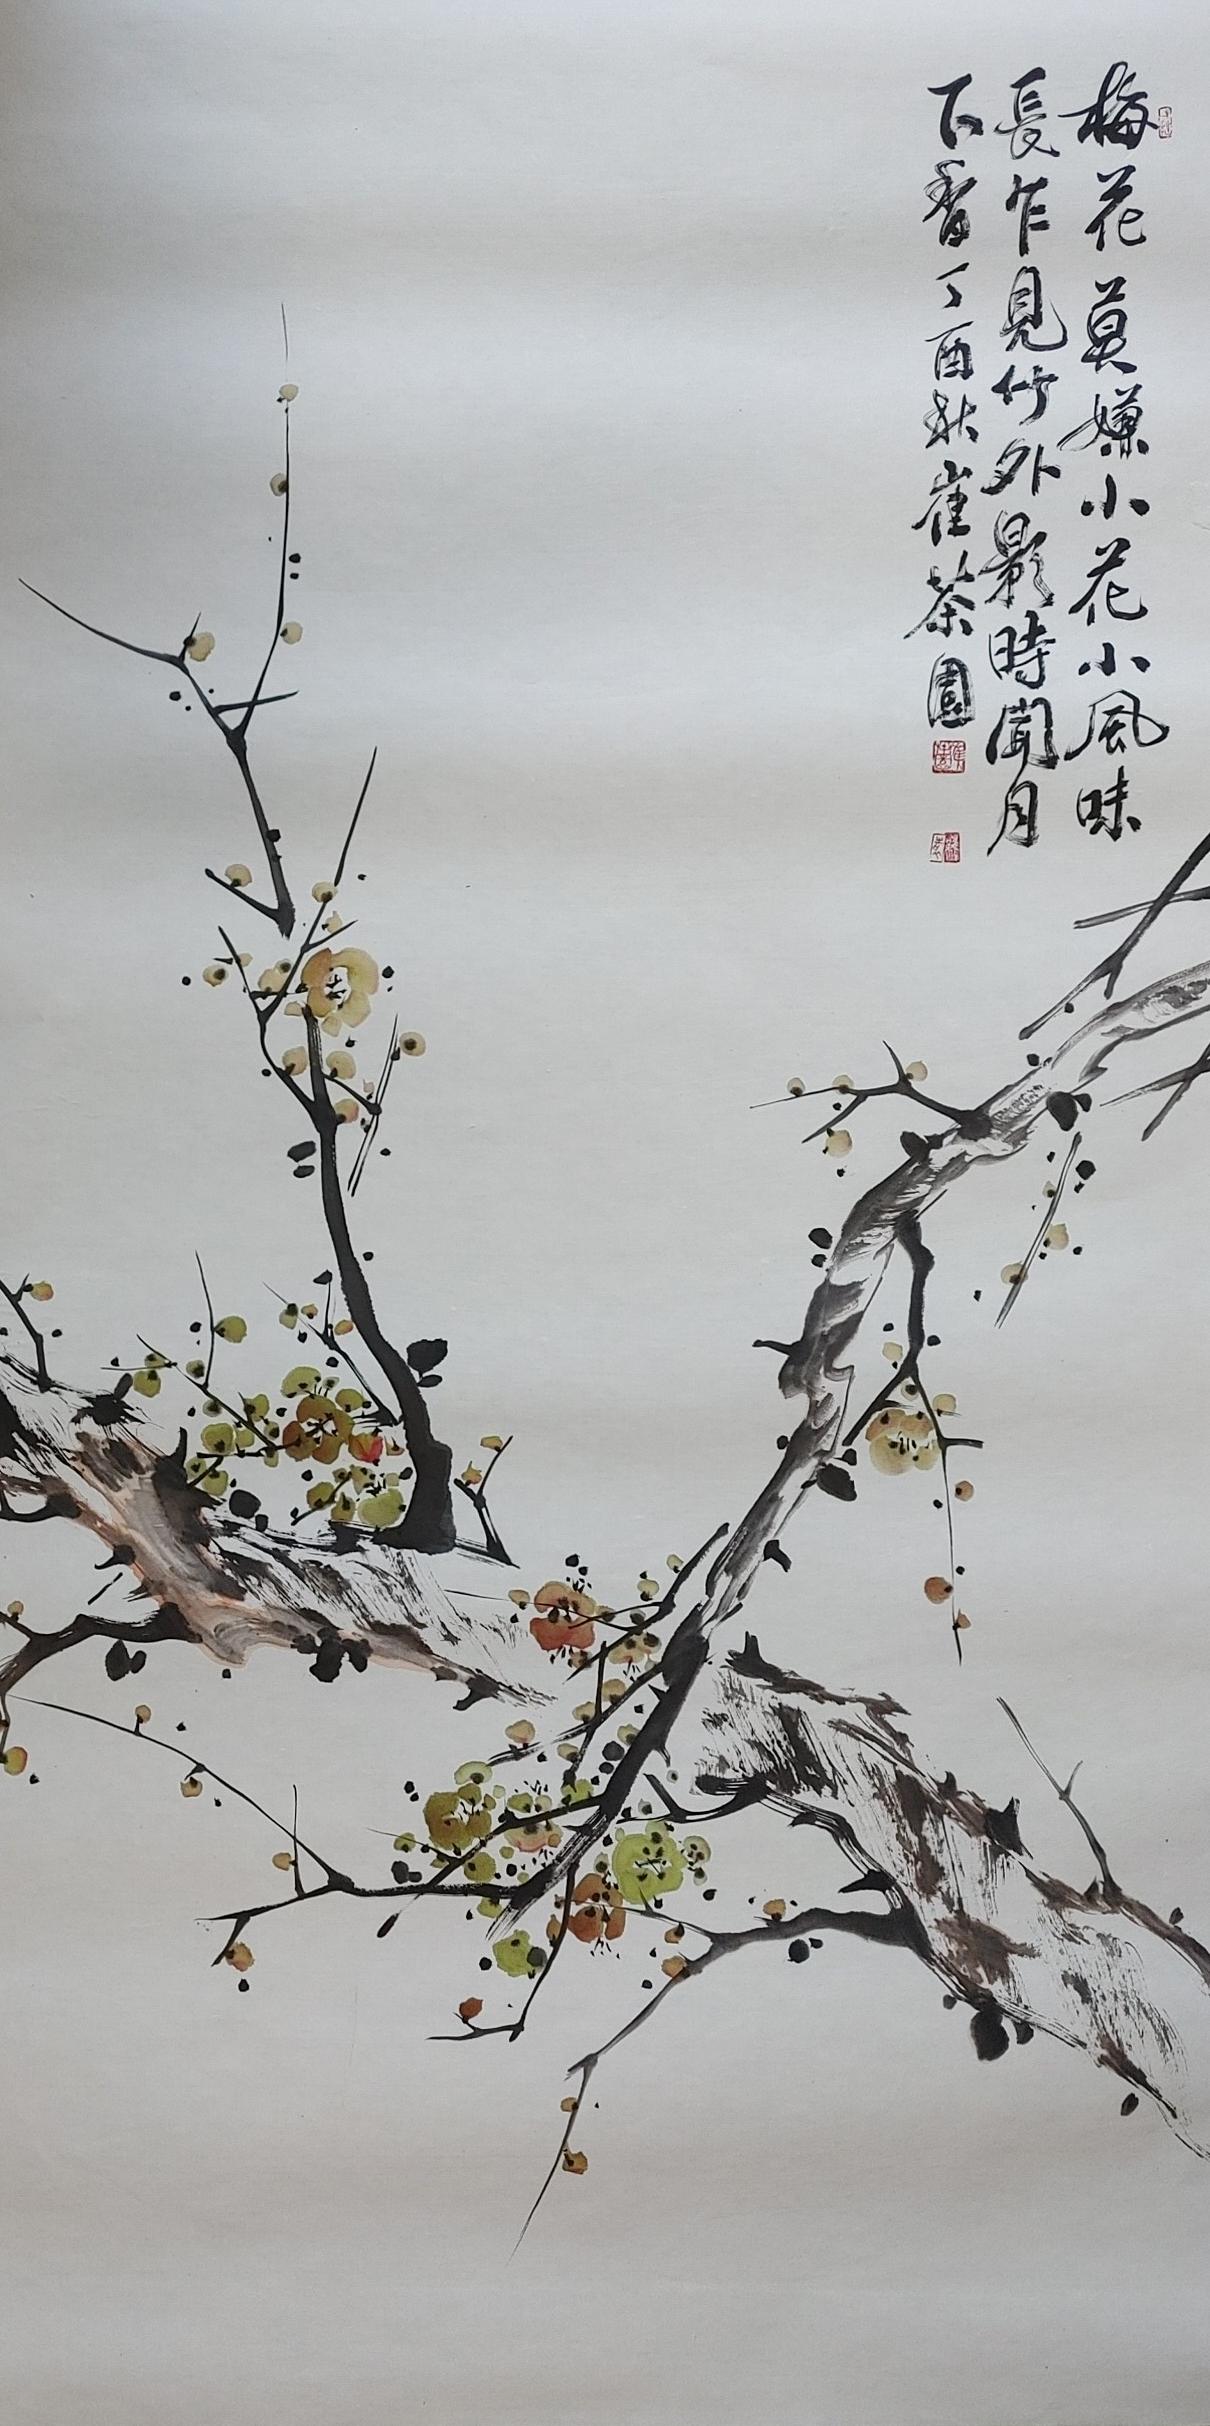 梅花莫嫌小花小風味
長乍見竹外影時聞月
下香丁酉秋崔茶園